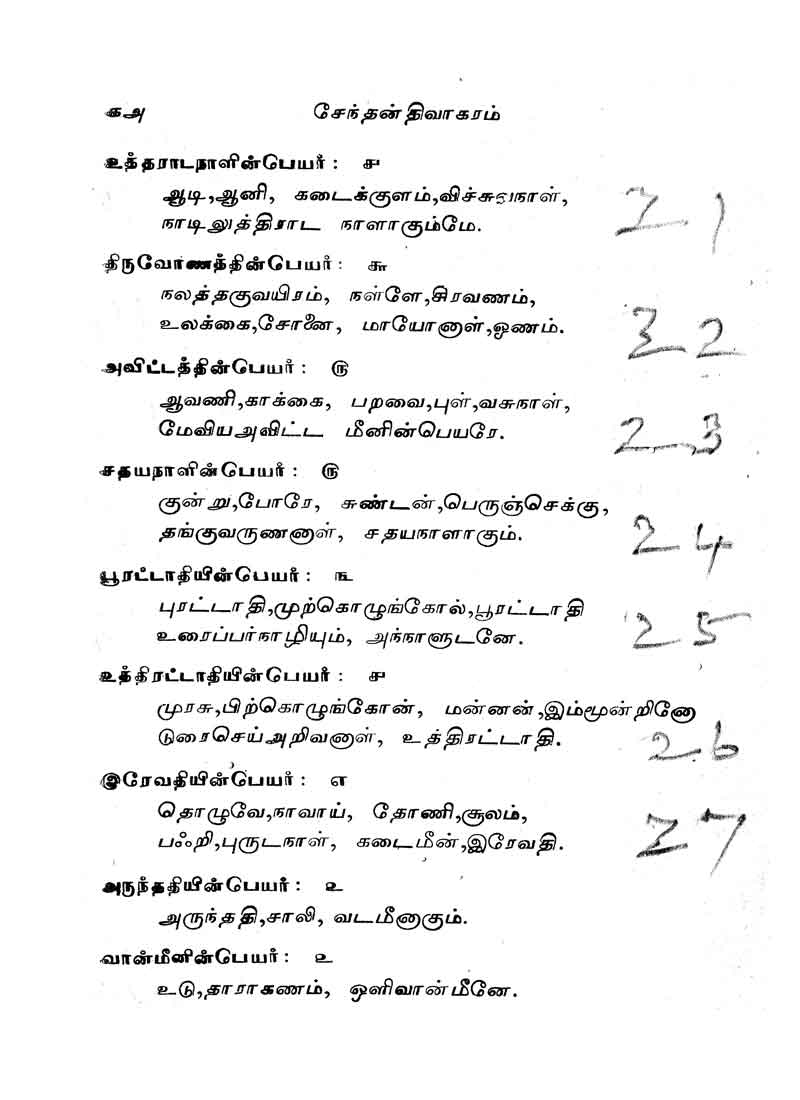 க௮ சேந்தன் திவாகரம்
உத்தராடநாளின்பெயர் : ௪
ஆடி,ஆனி, கடைக்குளம்,விச்சுவநாள்,
நாடிலுத்திராட நாளாகும்மே.
21
திருவோணத்தின்பெயர் : ௬
நலத்தகுவயிரம், நள்ளே,சிரவணம்,
உலக்கை,சோணை, மாயோனாள்,ஓணம்.
22
அவிட்டத்தின்பெயர் : ௫
ஆவணி,காக்கை, பறவை,புள்,வசுநாள்,
மேவியஅவிட்ட மீனின்பெயரே.
23
சதயநாளின்பெயர் : ௫
குன்று,போரே, சுண்டன்,பெருஞ்செக்கு,
தங்குவருணனாள், சதயநாளாகும்.
24
பூரட்டாதியின்பெயர் : ௩
புரட்டாதி,முற்கொழுங்கோல்,பூரட்டாதி
உரைப்பர்நாழியும், அந்நாளுடனே.
25
உத்திரட்டாதியின்பெயர் : ௪
முரசு,பிற்கொழுங்கோன், மன்னன்,இம்மூன்றினோ
டுரைசெய்அறிவனாள், உத்திரட்டாதி.
26
இரேவதியின்பெயர் : ௭
தொழுவே,நாவாய், தோணி,சூலம்,
பஃறி,புருடநாள், கடைமீன்,இரேவதி.
27
அருந்ததியின்பெயர் : ௨
அருந்ததி,சாலி, வடமீனாகும்.
வான்மீனின்பெயர் : ௨
உடு,தாராகணம், ஒளிவான்மீனே.